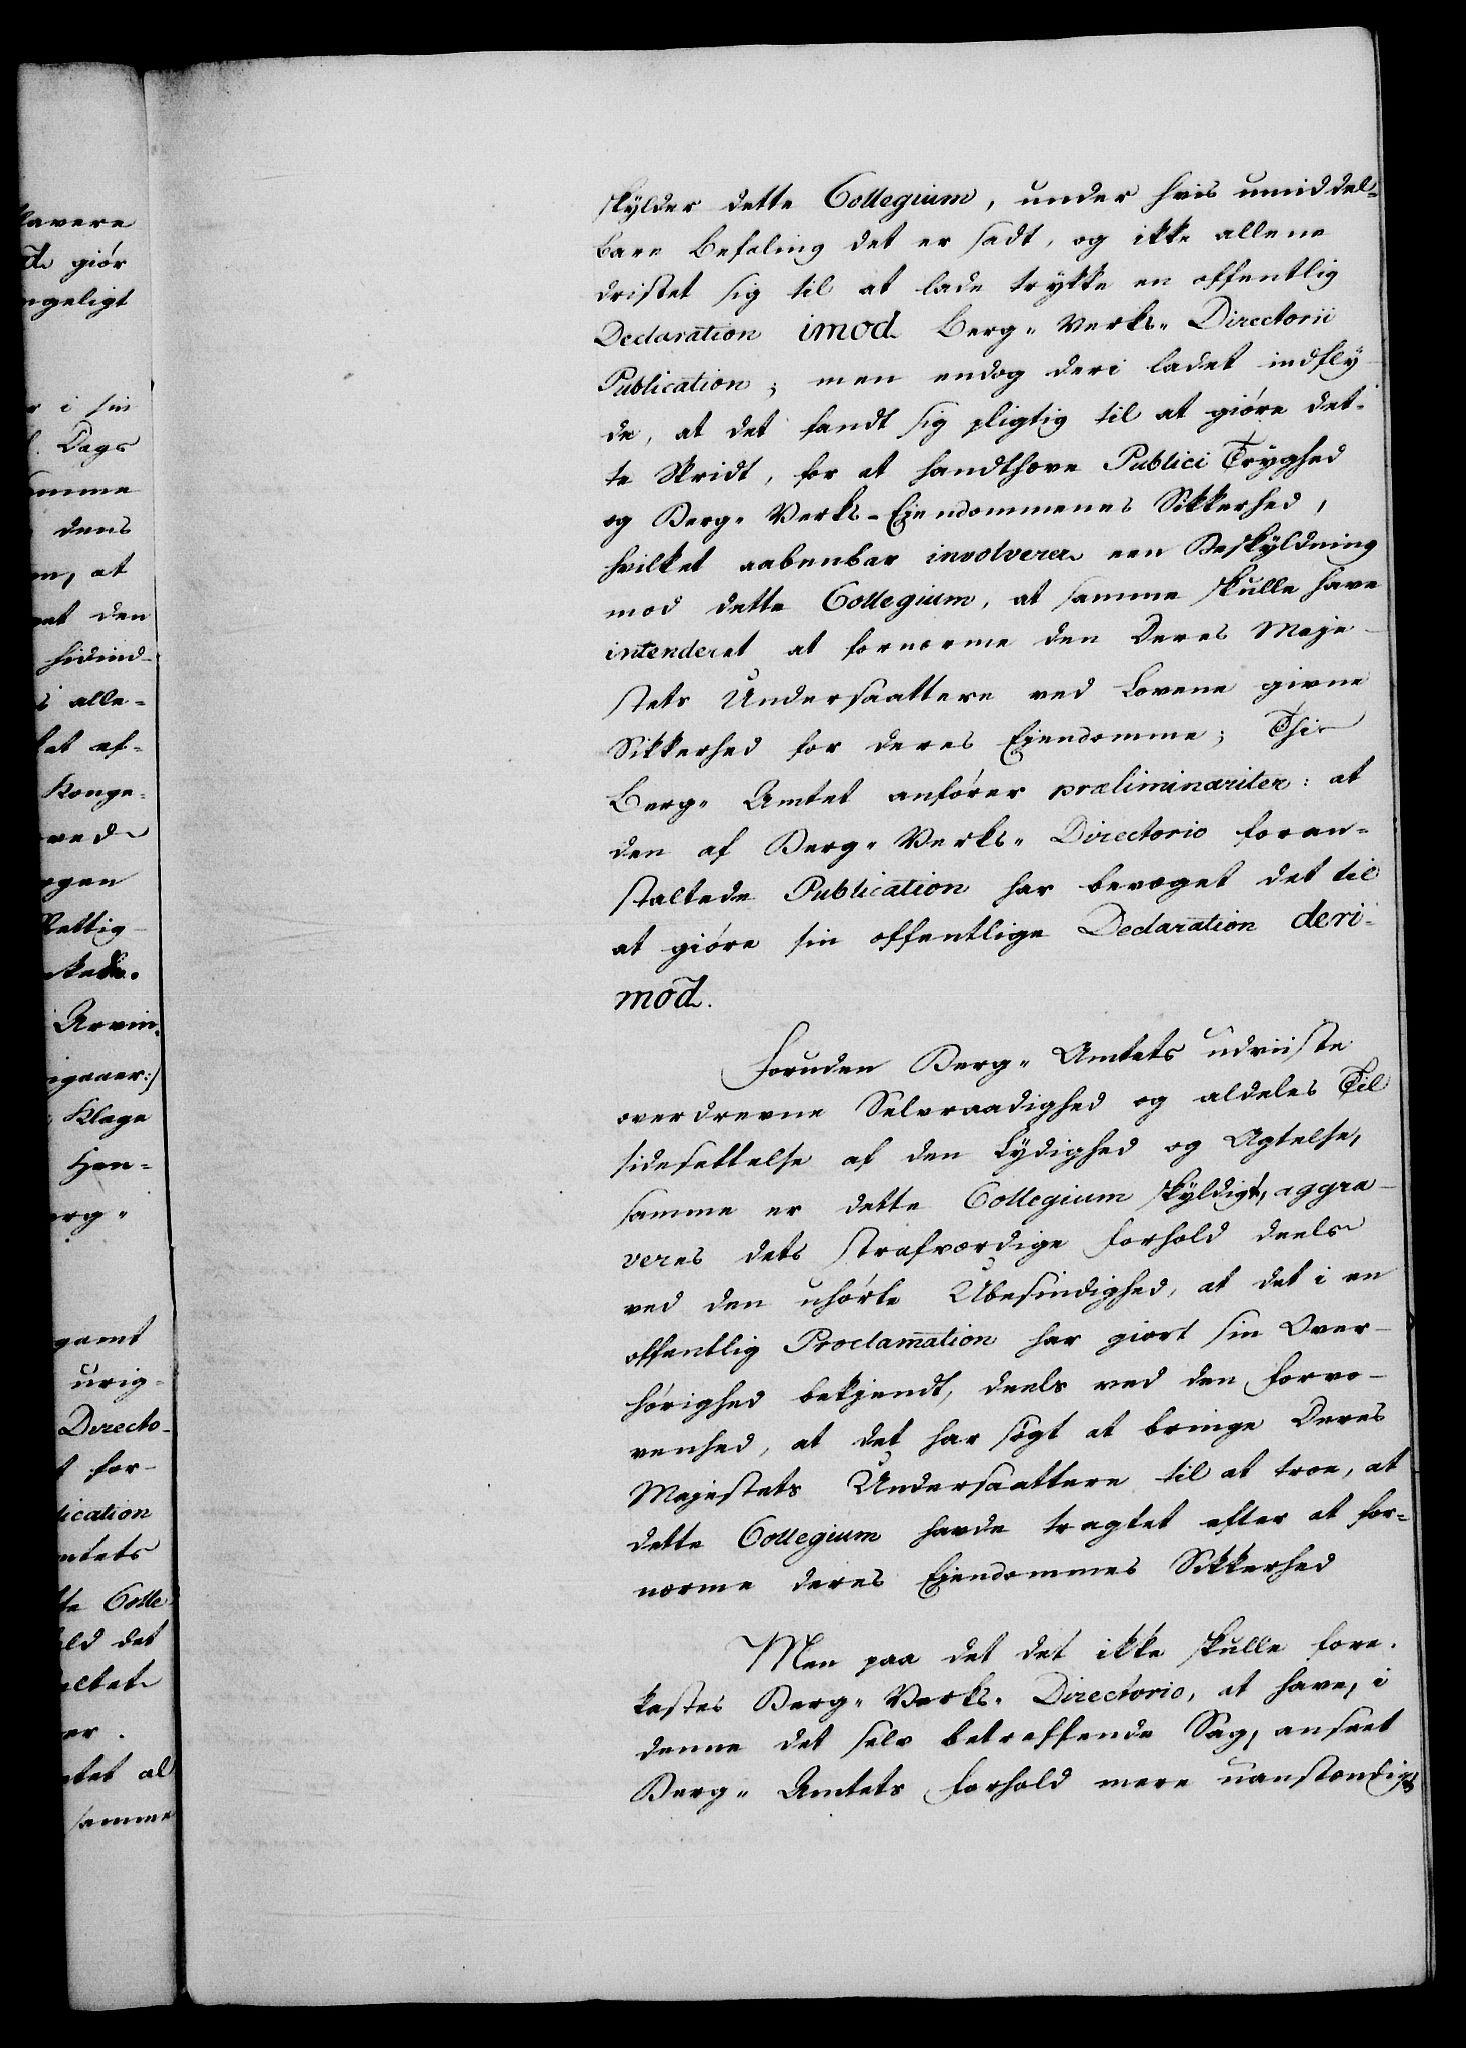 skylder dette Collegium, under hvis umiddel-
bare Befaling det er sadt, og ikke allene
dristet sig til at lade trykke en offentlig
Declaration imod Berg- Verks- Directorii
Publication; men endog deri ladet indfly-
de, at det fandt sig pligtig til at giöre det-
te Skridt, for at handthæve Publici Tryghed
og Berg- Verks-Eiendommenes Sikkerhed,
hvilket aabenbar involverer een Beskyldning
mod dette Collegium, at samme skulle have
intenderet at fornærme den Deres Maje-
stets Undersaattere ved Lovene givne
Sikkerhed for deres Eiendomme; Thi
Berg- Amtet anförer præliminariter: at
den af Berg- Verks- Directorio foran-
staltede Publication har bevæget det til
at giöre sin offentlige Declaration deri-
mod.
Foruden Berg- Amtets udviiste
overdrevne Selvraadighed og aldeles Til
sidesættelse af den Lydighed og Agtelse,
samme er dette Collegium skyldigt, aggra-
veres dets strafværdige Forhold deels
ved den uhörte Ubesindighed, at det i en
offentlig Proclamation har giort sin Over-
hörighed bekjendt, deels ved den Forvo-
venhed, at det har sögt at bringe Deres
Majestets Undersaattere til at troe, at
dette Collegium havde tragtet efter at for-
nærme deres Eiendommes Sikkerhed
Men paa det det ikke skulle fore-
kastes Berg- Verks- Directorio, at have, i
denne det selv betreffende Sag, anseet
Berg- Amtets Forhold mere uanstændigt
lavere
giör
ngeligt
i sin
Dags
amme
dens
at
den
hidind-
alle-
af-
Konge-
ved
Rettig-
Arvin-
igaaer:/
Klage
Hen-
erg-
gamt
urig-
Directo-
for-
lication
mtets
te Colle-
det
al
samme